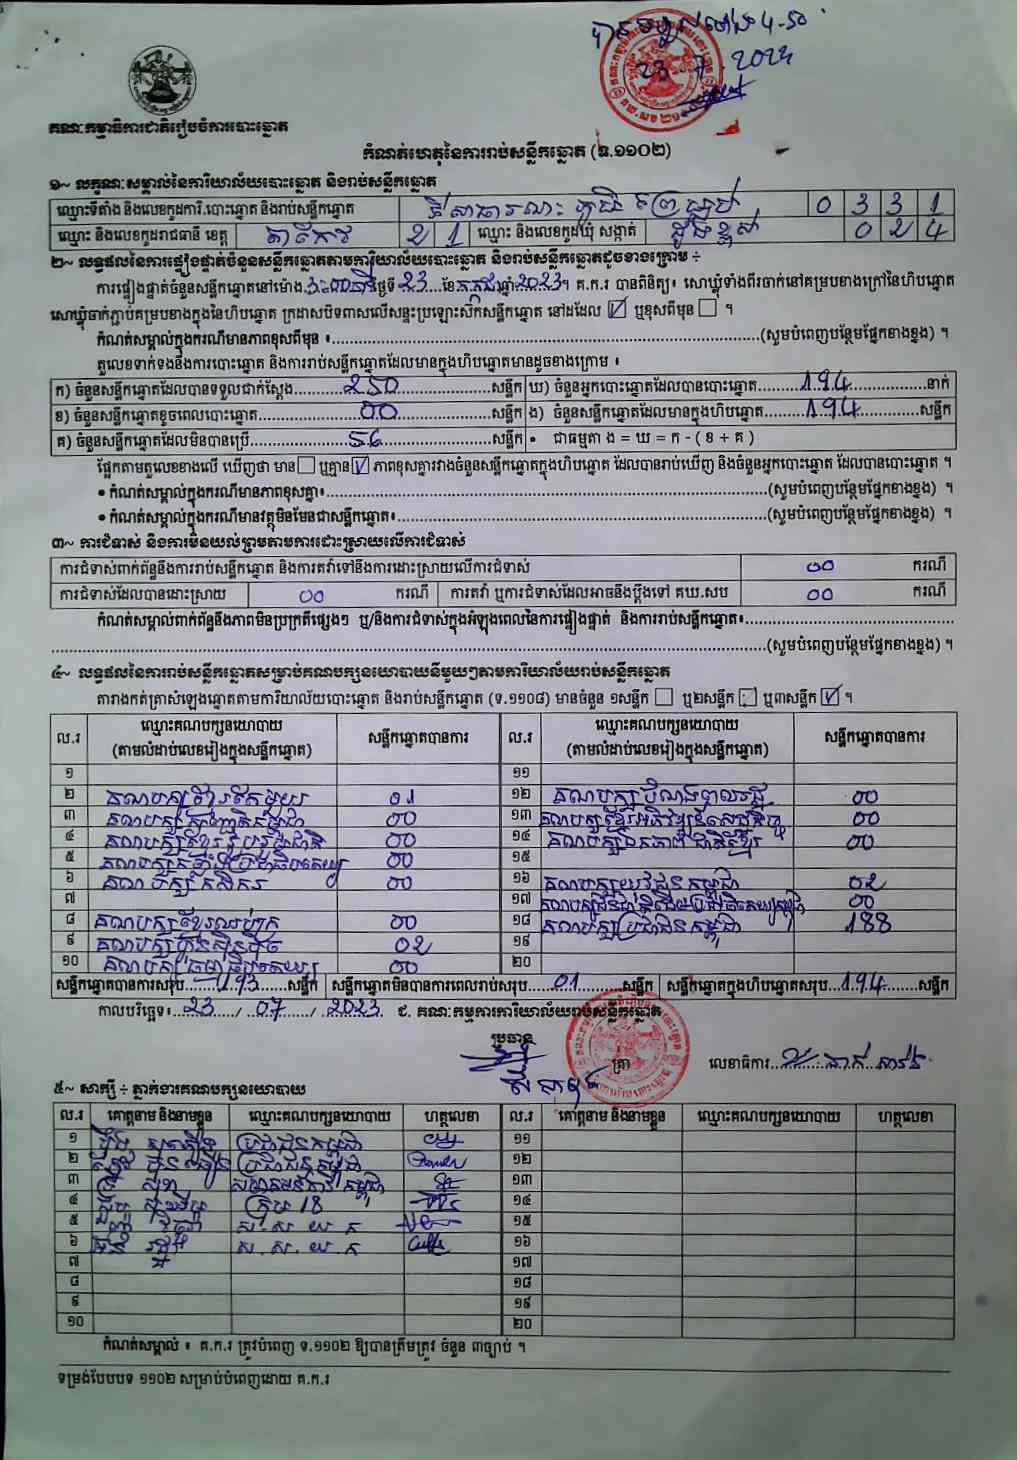 បានទទួលម៉ោង 4-50
23 7 2023
គណៈកម្មាធិការជាតិរៀបចំការបោះឆ្នោត
កំណត់ហេតុនៃការរាប់សន្លឹកឆ្នោត (ទ.១១០២)
១~ លក្ខណៈសម្គាល់នៃការិយាល័យបោះឆ្នោត និងរាប់សន្លឹកឆ្នោត
ឈ្មោះទីតាំង និងលេខកូដការិ.បោះឆ្នោត និងរាប់សន្លឹកឆ្នោត ទីសាធារណៈ ភូមិ 0 3 3 1
ឈ្មោះ និងលេខកូដរាជធានី ខេត្ត តាកែវ 2 1 ឈ្មោះ និងលេខកូដឃុំ សង្កាត់ ដូងខ្ពស់ 0 2 4
២~ លទ្ធផលនៃការផ្ទៀងផ្ទាត់ចំនួនសន្លឹកឆ្នោតតាមការិយាល័យបោះឆ្នោត និងរាប់សន្លឹកឆ្នោតដូចខាងក្រោម ÷
ការផ្ទៀងផ្ទាត់ចំនួនសន្លឹកឆ្នោតនៅម៉ោង ថ្ងៃទី 23 ខែ កក្កដា ឆ្នាំ 2023 ។ គ.ក.រ បានពិនិត្យ៖ សោឃ្លុំទាំងពីរចាក់នៅគម្របខាងក្រៅនៃហិបឆ្នោត
សោឃ្លុំចាក់ភ្ជាប់គម្របខាងក្នុងនៃហិបឆ្នោត ក្រដាសបិទពាសលើសន្ទះប្រឡោះសិកសន្លឹកឆ្នោត នៅដដែល ☑ ឬខុសពីមុន ☐ ។
កំណត់សម្គាល់ក្នុងករណីមានភាពខុសពីមុន ៖ (សូមបំពេញបន្ថែមផ្នែកខាងខ្នង) ។
តួលេខទាក់ទងនឹងការបោះឆ្នោត និងការរាប់សន្លឹកឆ្នោតដែលមានក្នុងហិបឆ្នោតមានដូចខាងក្រោម ៖
ក) ចំនួនសន្លឹកឆ្នោតដែលបានទទួលជាក់ស្តែង 250 សន្លឹក ឃ) ចំនួនអ្នកបោះឆ្នោតដែលបានបោះឆ្នោត 194 នាក់
ខ) ចំនួនសន្លឹកឆ្នោតខូចពេលបោះឆ្នោត 00 សន្លឹក ង) ចំនួនសន្លឹកឆ្នោតដែលមានក្នុងហិបឆ្នោត 194 សន្លឹក
គ) ចំនួនសន្លឹកឆ្នោតដែលមិនបានប្រើ 56 សន្លឹក • ជាធម្មតា ង = ឃ = ក - ( ខ + គ )
ផ្អែកតាមតួលេខខាងលើ ឃើញថា មាន ☐ ឬគ្មាន ☑ ភាពខុសគ្នារវាងចំនួនសន្លឹកឆ្នោតក្នុងហិបឆ្នោត ដែលបានរាប់ឃើញ និងចំនួនអ្នកបោះឆ្នោត ដែលបានបោះឆ្នោត ។
• កំណត់សម្គាល់ក្នុងករណីមានភាពខុសគ្នា៖ (សូមបំពេញបន្ថែមផ្នែកខាងខ្នង) ។
• កំណត់សម្គាល់ក្នុងករណីមានវត្ថុមិនមែនជាសន្លឹកឆ្នោត៖ (សូមបំពេញបន្ថែមផ្នែកខាងខ្នង) ។
៣~ ការជំទាស់ និងការមិនយល់ព្រមតាមការដោះស្រាយលើការជំទាស់
ការជំទាស់ពាក់ព័ន្ធនឹងការរាប់សន្លឹកឆ្នោត និងការតវ៉ាទៅនឹងការដោះស្រាយលើការជំទាស់ 00 ករណី
ការជំទាស់ដែលបានដោះស្រាយ 00 ករណី ការតវ៉ា ឬការជំទាស់ដែលអាចនឹងប្តឹងទៅ គឃ.សប 00 ករណី
កំណត់សម្គាល់ពាក់ព័ន្ធនឹងភាពមិនប្រក្រតីផ្សេងៗ ឬ/និងការជំទាស់ក្នុងអំឡុងពេលនៃការផ្ទៀងផ្ទាត់ និងការរាប់សន្លឹកឆ្នោត៖
(សូមបំពេញបន្ថែមផ្នែកខាងខ្នង) ។
៤~ លទ្ធផលនៃការរាប់សន្លឹកឆ្នោតសម្រាប់គណបក្សនយោបាយនីមួយៗតាមការិយាល័យរាប់សន្លឹកឆ្នោត
តារាងកត់ត្រាសំឡេងឆ្នោតតាមការិយាល័យបោះឆ្នោត និងរាប់សន្លឹកឆ្នោត (ទ.១១០៨) មានចំនួន ១សន្លឹក ☐ ឬ២សន្លឹក ☐ ឬ៣សន្លឹក ☑ ។
ល.រ ឈ្មោះគណបក្សនយោបាយ (តាមលំដាប់លេខរៀងក្នុងសន្លឹកឆ្នោត) សន្លឹកឆ្នោតបានការ ល.រ ឈ្មោះគណបក្សនយោបាយ (តាមលំដាប់លេខរៀងក្នុងសន្លឹកឆ្នោត) សន្លឹកឆ្នោតបានការ
១ ១១
២ គណបក្ស 01 ១២ គណបក្ស 00
៣ គណបក្ស 00 ១៣ គណបក្សខ្មែរអភិវឌ្ឍន៍សេដ្ឋកិច្ច 00
៤ គណបក្សខ្មែររួបរួមជាតិ 00 ១៤ គណបក្សឯកភាពជាតិខ្មែរ 00
៥ គណបក្ស 00 ១៥
៦ គណបក្សកសិករ 00 ១៦ គណបក្សយុវជនកម្ពុជា 02
៧ ១៧ គណបក្ស 00
៨ គណបក្សខ្មែរឈប់ក្រ 00 ១៨ គណបក្សប្រជាជនកម្ពុជា 188
៩ គណបក្សហ៊្វុនស៊ិនប៉ិច 02 ១៩
១០ គណបក្សធម្មាធិបតេយ្យ 00 ២០
សន្លឹកឆ្នោតបានការសរុប 193 សន្លឹក សន្លឹកឆ្នោតមិនបានការពេលរាប់សរុប 01 សន្លឹក សន្លឹកឆ្នោតក្នុងហិបឆ្នោតសរុប 194 សន្លឹក
កាលបរិច្ឆេទ៖ 23 / 07 / 2023 ជ. គណៈកម្មការការិយាល័យរាប់សន្លឹកឆ្នោត
ប្រធាន
ត្រា លេខាធិការ
៥~ សាក្សី ÷ ភ្នាក់ងារគណបក្សនយោបាយ
ល.រ គោត្តនាម និងនាមខ្លួន ឈ្មោះគណបក្សនយោបាយ ហត្ថលេខា ល.រ គោត្តនាម និងនាមខ្លួន ឈ្មោះគណបក្សនយោបាយ ហត្ថលេខា
១ ប្រជាជនកម្ពុជា ១១
២ ប្រជាជនកម្ពុជា ១២
៣ ១៣
៤ ក្រុម 18 ១៤
៥ ស.ស.យ.ក ១៥
៦ ស.ស.យ.ក ១៦
៧ ១៧
៨ ១៨
៩ ១៩
១០ ២០
កំណត់សម្គាល់ ៖ គ.ក.រ ត្រូវបំពេញ ទ.១១០២ ឱ្យបានត្រឹមត្រូវ ចំនួន ៣ច្បាប់ ។
ទម្រង់បែបបទ ១១០២ សម្រាប់បំពេញដោយ គ.ក.រ